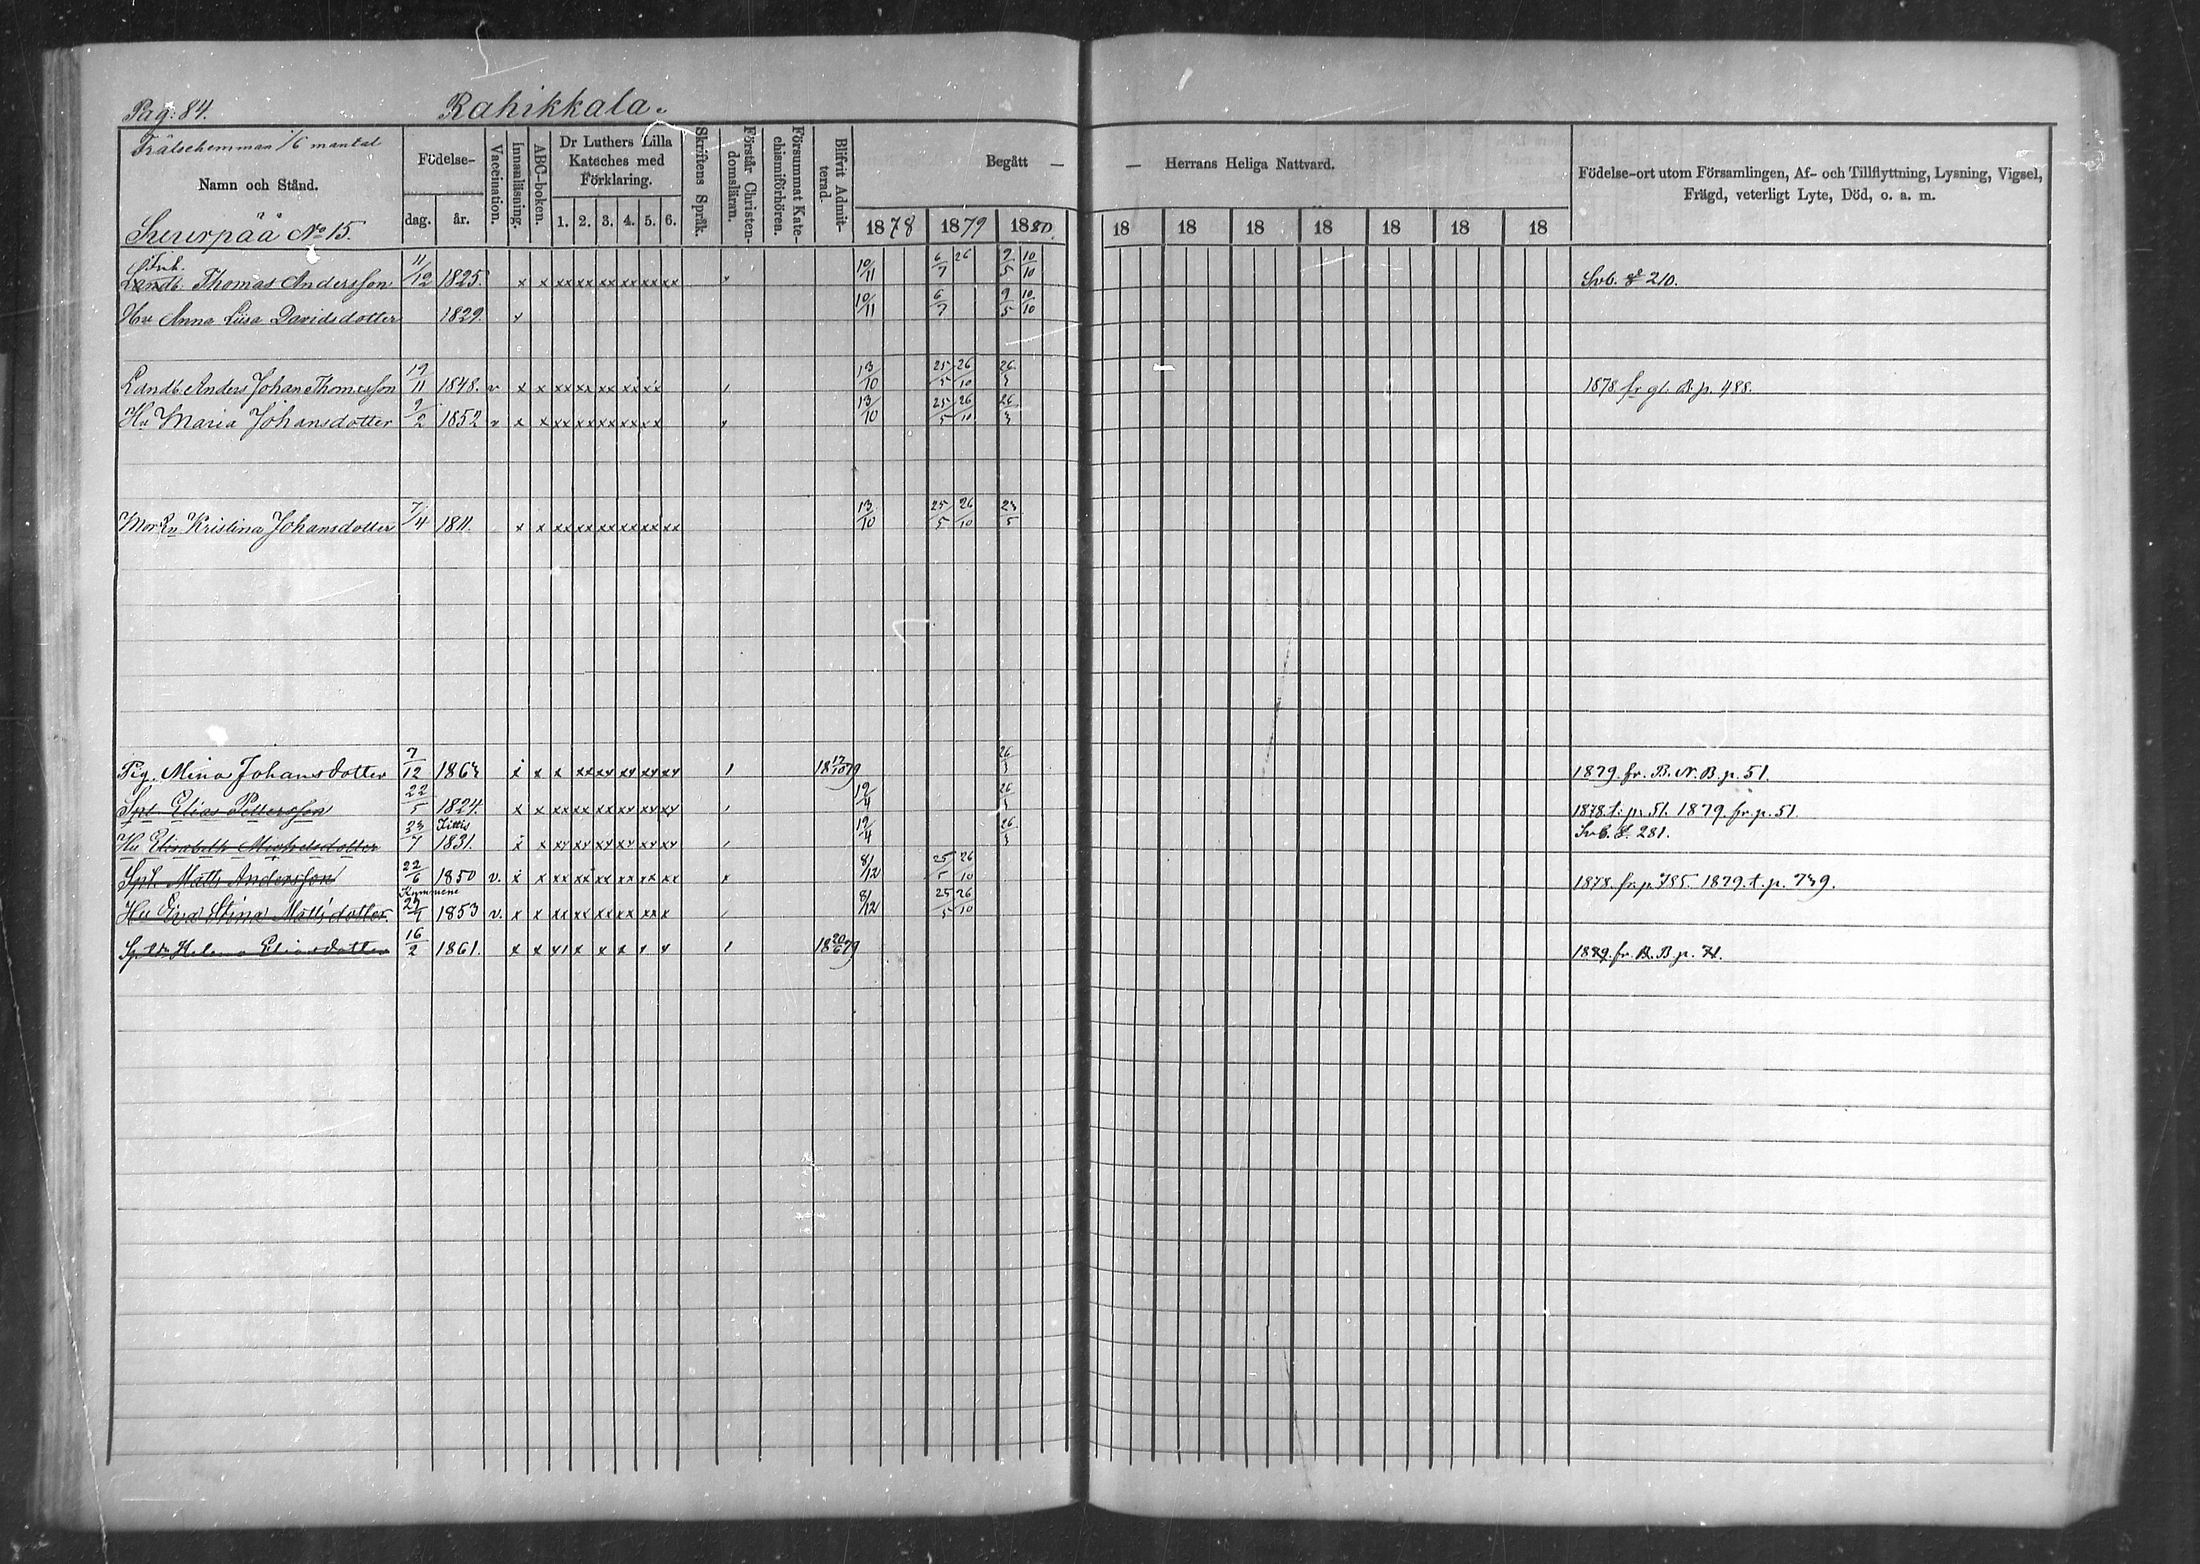 Pag: 84. Rahikkala.
Frälsehemman 1/6 mantal
Namn och Stånd.
Suurpää No 15.
Födelse- dag. år.
Vaccination.
Innanläsning.
ABC-boken.
Dr Luthers Lilla Kateches med Förklaring.
1. 2. 3. 4. 5. 6.
Skriftens Språk.
Förstår Christendomsläran.
Försummat Katechismiförhören.
Blifvit Admitterad.
Begått — — Herrans Heliga Nattvard.
1878 1879 1880. 18 18 18 18 18 18 18
Födelse-ort utom Församlingen, Af- och Tillflyttning, Lysning, Vigsel,
Frägd, veterligt Lyte, Död, o. a. m.
Landb. Thomas Andersson 11/12 1825. x x xx xx xx xx xx xx 10/11 6/7 26 9/5 10/10 210.
Hu Anna Liisa Davidsdotter 1829. 10/11 6/7 9/5 10/10
Landb. Anders Johan Thomasson 19/11 1848. v x x xx xx xx xx xx 13/10 25/5 26/10 26/3 1878 fr gl. B. p. 488.
Hu Maria Johansdotter 9/2 1852 v x x xx xx xx xx xx 13/10 25/5 26/10 26/3
Mor Kristina Johansdotter 7/4 1811. x x xx xx xx xx xx xx 13/10 25/5 26/10 23/5
Pig. Mina Johansdotter 7/12 1863 x x x xx xx xx xx xx 26/3 1879. fr. B. N. B. p. 51.
Spt. Elias Pettersson 22/5 1824. x x xx xx xx xx xx xx 19/4 26/3 1878 t. p. 51. 1879. fr. p. 51.
Hu Elisabeth Michelsdotter 23/7 Jittis 1831. x x xx xx xx xx xx xx 19/4 26/3 281.
Spt. Matts Andersson 22/6 1850 v. x x xx xx xx xx xx xx 8/12 25/5 26/10 1878. fr. p. 785. 1879. t. p. 739.
Hu Eva Stina Mattsdotter Kymmene 1853 v. x x xx xx xx xx xx x 8/12 25/5 26/10
Helena Eliasdotter 16/2 1861. x x 18 20/6 79 fr. B. B p. 71.